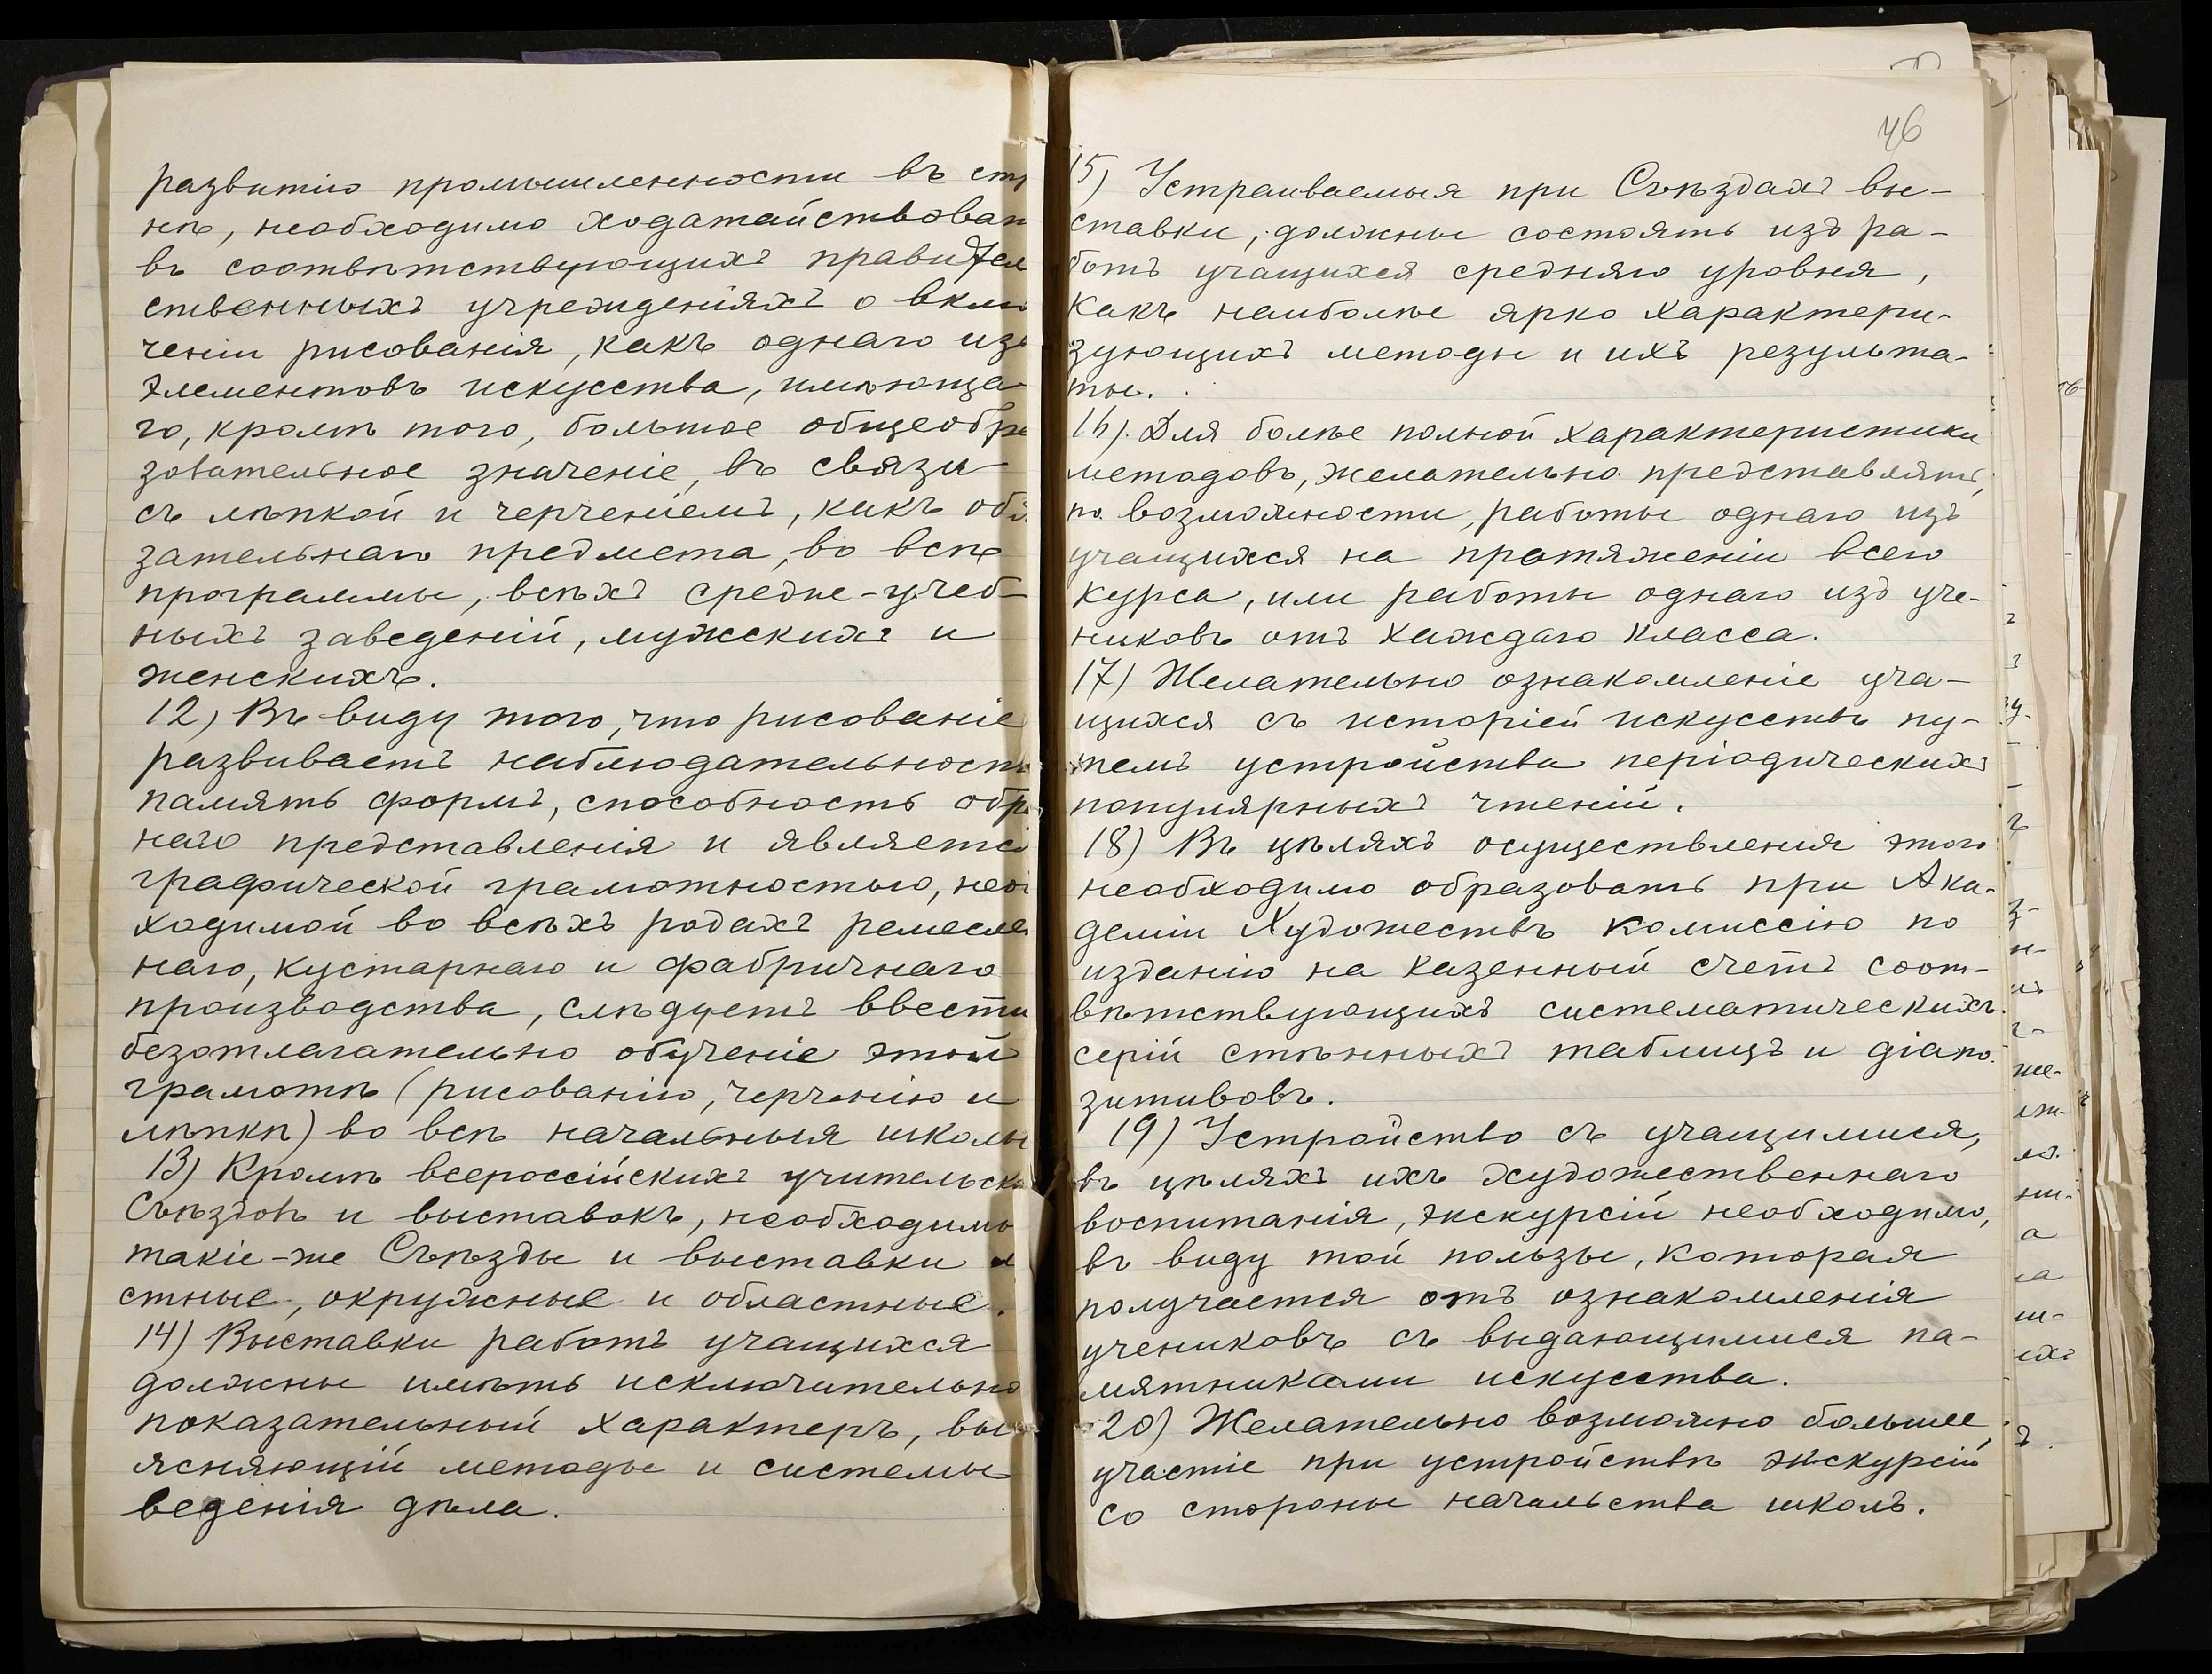 развитію промышленности въ стр
нѣ, необходимо ходатайствоват
въ соотвѣтствующихъ правител
ственныхъ учрежденіяхъ о вклю
ченіи рисованія, какъ однаго изъ
элементовъ искусства, имѣюща
го, кромѣ того, большое общеобра
зовательное значеніе, въ связи
съ лѣпкой и черченіемъ, какъ обя
зательнаго предмета, во всѣ
программы, всѣхъ средне-учеб-
ныхъ заведеній, мужскихъ и
женскихъ.
12) Въ виду того, что рисованіе
развиваетъ наблюдательность
память формъ, способность обра
наго представленія и является
графической грамотностью, необ
ходимой во всѣхъ родахъ ремеслен
наго, кустарнаго и фабричнаго
производства, слѣдуетъ ввести
безотлагательно обученіе этой
грамотѣ (рисованію, черченію и
лѣпкѣ) во всѣ начальныя школы
13) Кромѣ всероссійскихъ учительск
Съѣздовъ и выставокъ, необходимо
такіе-же Съѣзды и выставки м
стные, окружные и областные.
14) Выставки работъ учащихся
должны имѣть исключительно
показательный характеръ, вы
ясняющій методы и системы
веденія дѣла.
46
15) Устраиваемыя при Съѣздахъ вы-
ставки, должны состоять изъ ра-
ботъ учащихся средняго уровня,
какъ наиболѣе ярко характери-
зующихъ методы и ихъ результа-
ты.
16). Для болѣе полной характеристики
методовъ, желательно представлять,
по возможности, работы однаго изъ
учащихся на протяженіи всего
курса, или работы однаго изъ уче-
никовъ отъ каждаго класса.
17) Желательно ознакомленіе уча-
щихся съ исторіей искусствъ пу-
темъ устройства періодическихъ
популярныхъ чтеній.
18) Въ цѣляхъ осуществленія этого
необходимо образовать при Ака-
деміи Художествъ комиссію по
изданію на казенный счетъ соот-
вѣтствующихъ систематическихъ
серій стѣнныхъ таблицъ и діапо-
зитивовъ.
19) Устройство съ учащимися,
въ цѣляхъ ихъ художественнаго
воспитанія, экскурсій необходимо,
въ виду той пользы, которая
получается отъ ознакомленія
учениковъ съ выдающимися па-
мятниками искусства.
20) Желательно возможно большее
участіе при устройствѣ экскурсій
со стороны начальства школъ.